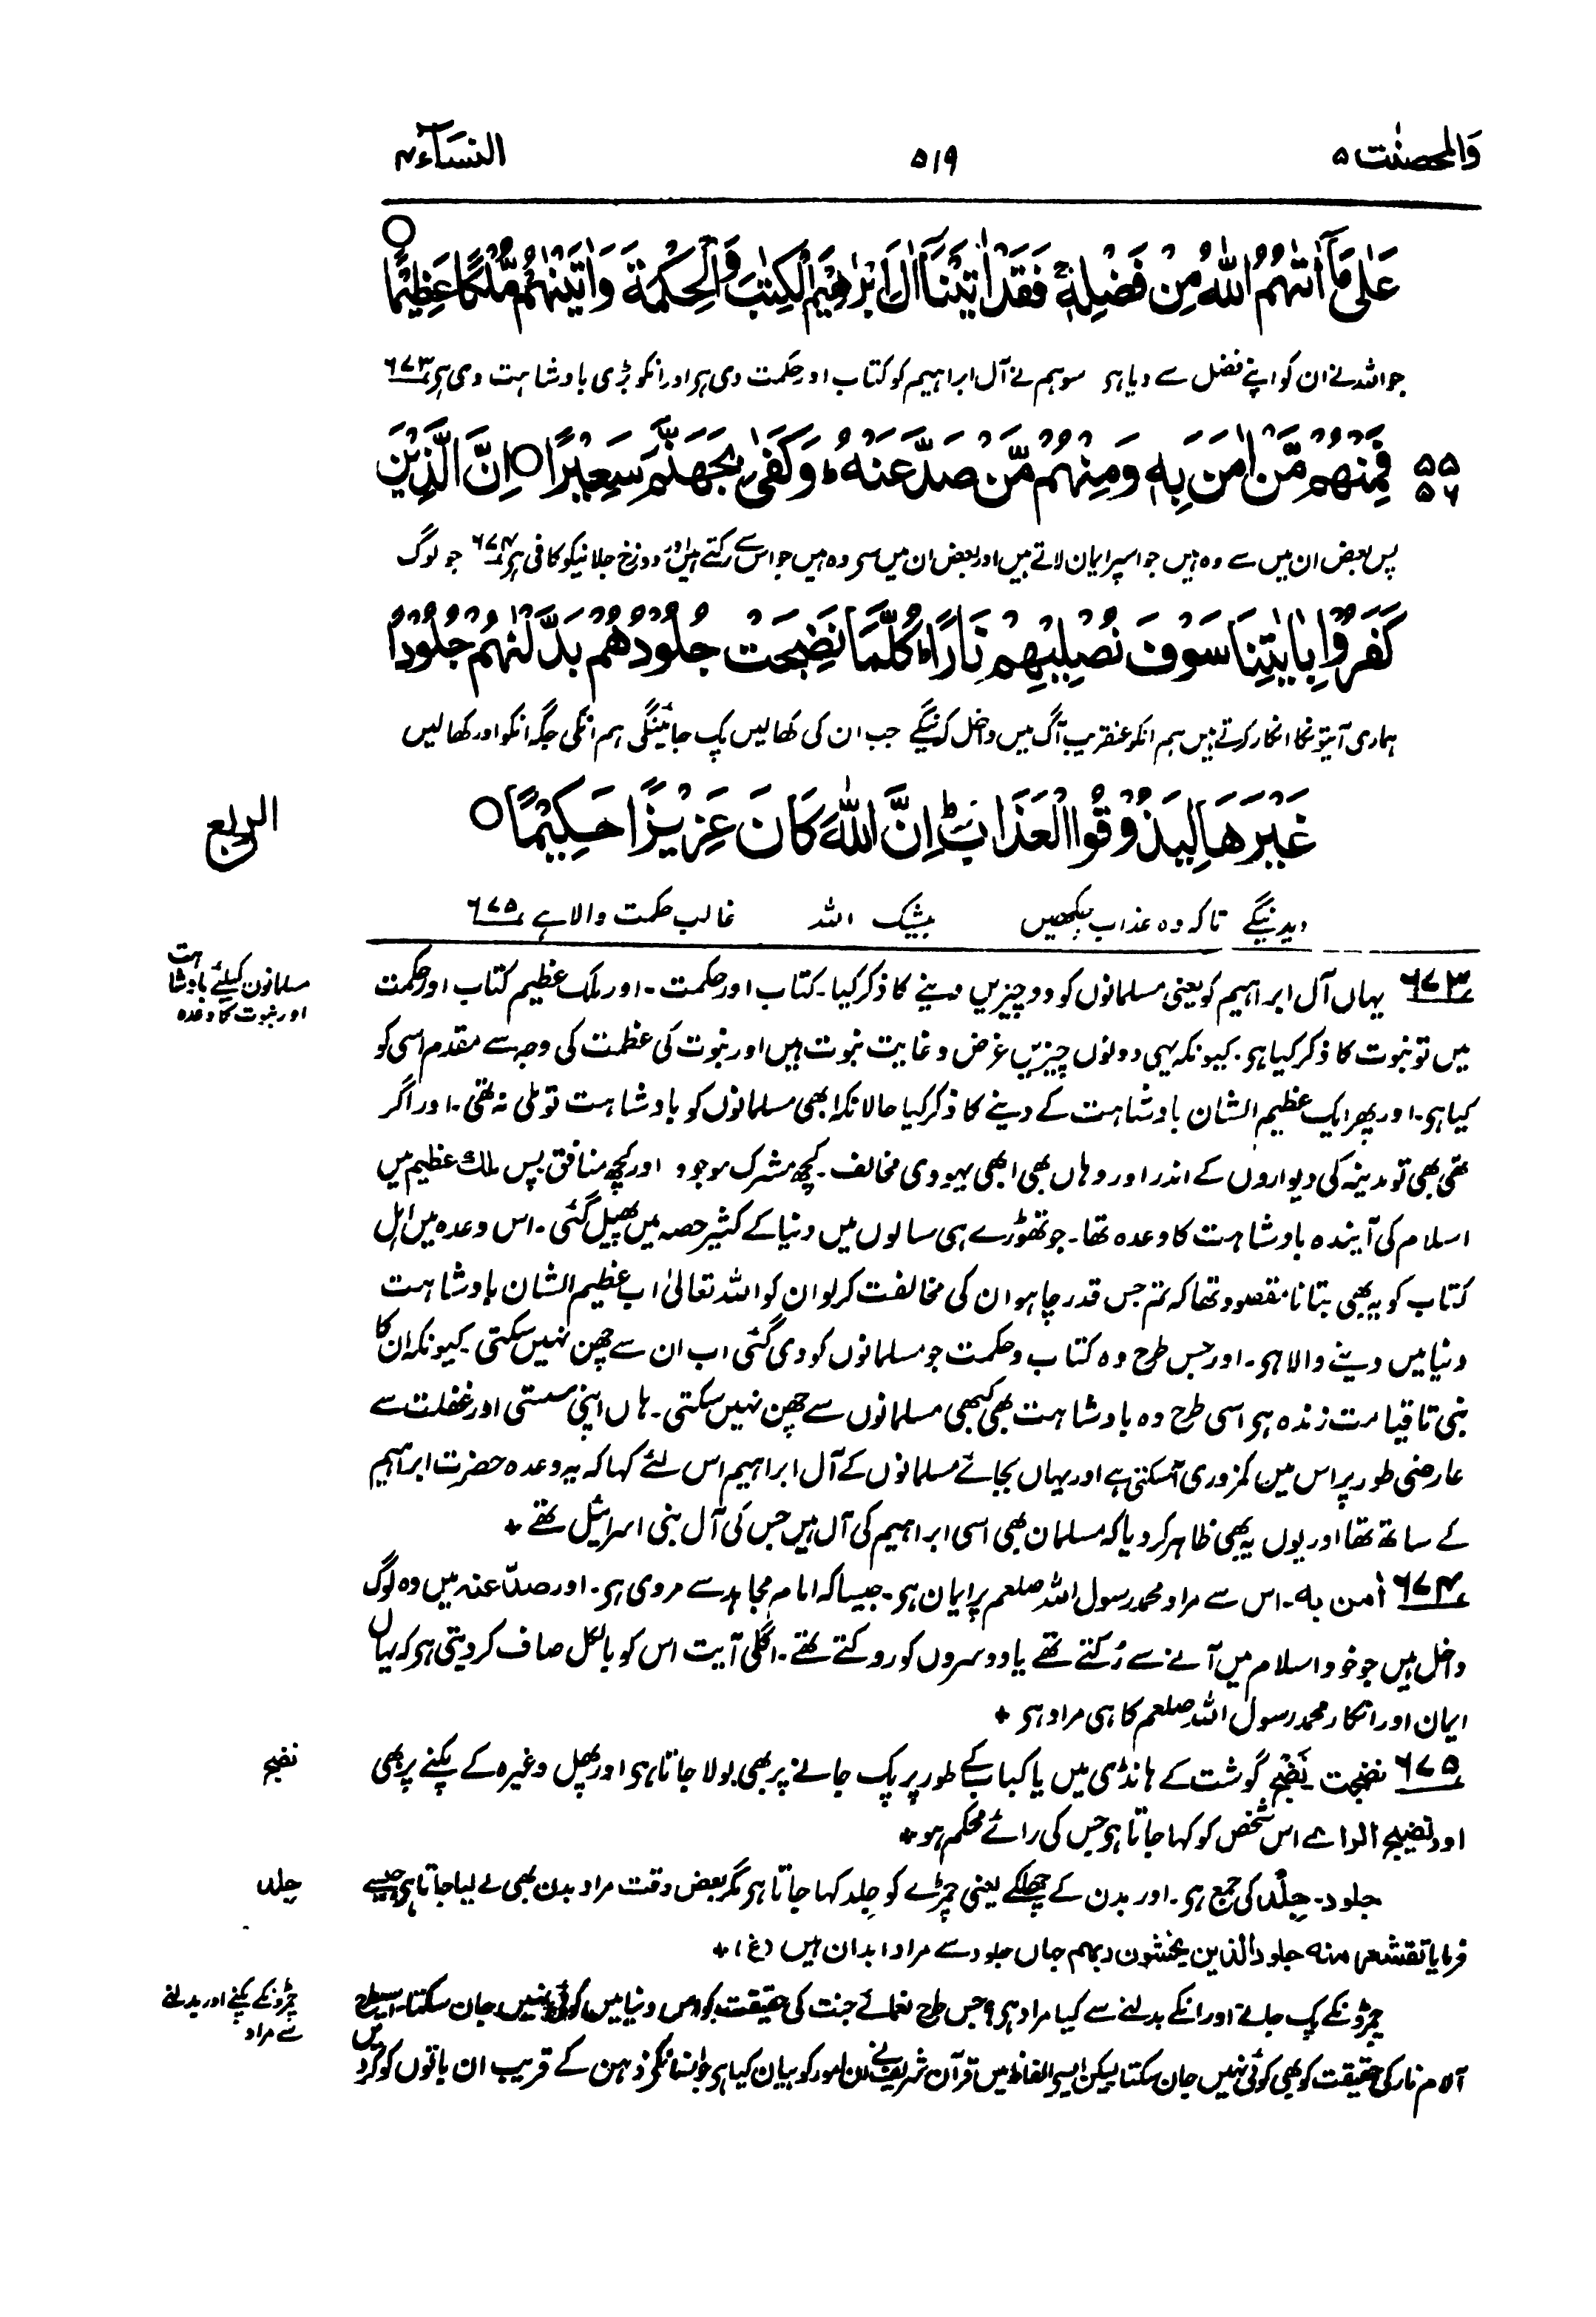 والمحصنٰت ۵
۵۱۹
النسآء ۴
عَلٰى مَآ اٰتٰىهُمُ اللّٰهُ مِنْ فَضْلِهٖ ۚ فَقَدْ اٰتَيْنَآ اٰلَ اِبْرٰهِيْمَ الْكِتٰبَ وَالْحِكْمَةَ وَاٰتَيْنٰهُمْ مُّلْكًا عَظِيْمًا ○
جو اللہ نے ان کو اپنے فضل سے دیا ہو سو ہم نے آل ابراہیم کو کتاب اور حکمت دی ہو اور انکو بڑی بادشاہت دی ہو ۶۷۳
۵۵ ۵۶ فَمِنْهُمْ مَّنْ اٰمَنَ بِهٖ وَمِنْهُمْ مَّنْ صَدَّ عَنْهُ ؕ وَكَفٰى بِجَهَنَّمَ سَعِيْرًا ○ اِنَّ الَّذِيْنَ
پس بعض ان میں سے وہ ہیں جو اسپر ایمان لاتے ہیں اور بعض ان میں سے وہ ہیں جو اس سے رکتے ہیں اور دوزخ جلانیکو کافی ہو ۶۷۴ جو لوگ
كَفَرُوْا بِاٰيٰتِنَا سَوْفَ نُصْلِيْهِمْ نَارًا ؕ كُلَّمَا نَضِجَتْ جُلُوْدُهُمْ بَدَّلْنٰهُمْ جُلُوْدًا
ہماری آیتونکا انکار کرتے ہیں ہم انکو عنقریب آگ میں داخل کرینگے جب ان کی کھالیں پک جائینگی ہم انکی جگہ انکو اور کھالیں
غَيْرَهَا لِيَذُوْقُوا الْعَذَابَ ؕ اِنَّ اللّٰهَ كَانَ عَزِيْزًا حَكِيْمًا ○
الربع
دیدینگے تاکہ وہ عذاب چکھیں بیشک اللہ غالب حکمت والا ہے ۶۷۵
۶۷۳ یہاں آل ابراہیم کو یعنی مسلمانوں کو دو چیزیں دینے کا ذکر کیا۔ کتاب اور حکمت۔ اور ملک عظیم کتاب اور حکمت
مسلمانوں کیلئے بادشاہت
اور نبوت کا وعدہ
میں تو نبوت کا ذکر کیا ہو۔ کیونکہ یہی دونوں چیزیں غرض و غایت نبوت ہیں اور نبوت کی عظمت کی وجہ سے مقدم اسی کو
کیا ہو۔ اور پھر ایک عظیم الشان بادشاہت کے دینے کا ذکر کیا حالانکہ ابھی مسلمانوں کو بادشاہت تو ملی نہ تھی۔ اور اگر
تھی بھی تو مدینہ کی دیواروں کے اندر اور وہاں بھی ابھی یہودی مخالف۔ کچھ مشرک موجود اور کچھ منافق پس ملک عظیم میں
اسلام کی آیندہ بادشاہت کا وعدہ تھا۔ جو تھوڑے ہی سالوں میں دنیا کے کثیر حصہ میں پھیل گئی۔ اس وعدہ میں اہل
کتاب کو یہ بھی بتانا مقصود تھا کہ تم جس قدر چاہو ان کی مخالفت کر لو ان کو اللہ تعالیٰ اب عظیم الشان بادشاہت
دنیا میں دینے والا ہو۔ اور جس طرح وہ کتاب و حکمت جو مسلمانوں کو دی گئی اب ان سے چھن نہیں سکتی۔ کیونکہ ان کا
نبی تا قیامت زندہ ہو اسی طرح وہ بادشاہت بھی کبھی مسلمانوں سے چھن نہیں سکتی۔ ہاں اپنی سستی اور غفلت سے
عارضی طور پر اس میں کمزوری آسکتی ہے اور یہاں بجائے مسلمانوں کے آل ابراہیم اس لئے کہا کہ یہ وعدہ حضرت ابراہیم
کے ساتھ تھا اور یوں یہ بھی ظاہر کر دیا کہ مسلمان بھی اسی ابراہیم کی آل ہیں جس کی آل بنی اسرائیل تھے *
۶۷۴ اٰمن به۔ اس سے مراد محمد رسول اللہ صلعم پر ایمان ہو۔ جیسا کہ امام مجاہد سے مروی ہو۔ اور صدّ عنہ میں وہ لوگ
داخل ہیں جو خود اسلام میں آنے سے رُکتے تھے یا دوسروں کو روکتے تھے۔ اگلی آیت اس کو بالکل صاف کر دیتی ہو کہ یہاں
ایمان اور انکار محمد رسول اللہ صلعم کا ہی مراد ہو *
۶۷۵ نضجت نَضْج گوشت کے ہانڈی میں یا کباب کے طور پر پک جانے پر بھی بولا جاتا ہو اور پھل وغیرہ کے پکنے پر بھی
نضج
اور نضیج الرائے اس شخص کو کہا جاتا ہو جس کی رائے محکم ہو *
جلود۔ جِلْد کی جمع ہو۔ اور بدن کے چھلکے یعنی چمڑے کو جِلد کہا جاتا ہو مگر بعض وقت مراد بدن بھی لے لیا جاتا ہو جیسے
جلد
فرمایا تقشعر منه جلود الذین یخشون ربھم جہاں جلود سے مراد ابدان ہیں (غ) *
چمڑونکے پک جانے اور انکے بدلنے سے کیا مراد ہو؟ جس طرح نعمائے جنت کی حقیقت کو اس دنیا میں کوئی نہیں جان سکتا۔ اسیطرح
چمڑونکے پکنے اور بدلنے
سے مراد
آلام نار کی حقیقت کو بھی کوئی نہیں جان سکتا لیکن ایسے الفاظ میں قرآن شریف نے ان امور کو بیان کیا ہو جو انسان کے ذہن کے قریب ان باتوں کو کردیں